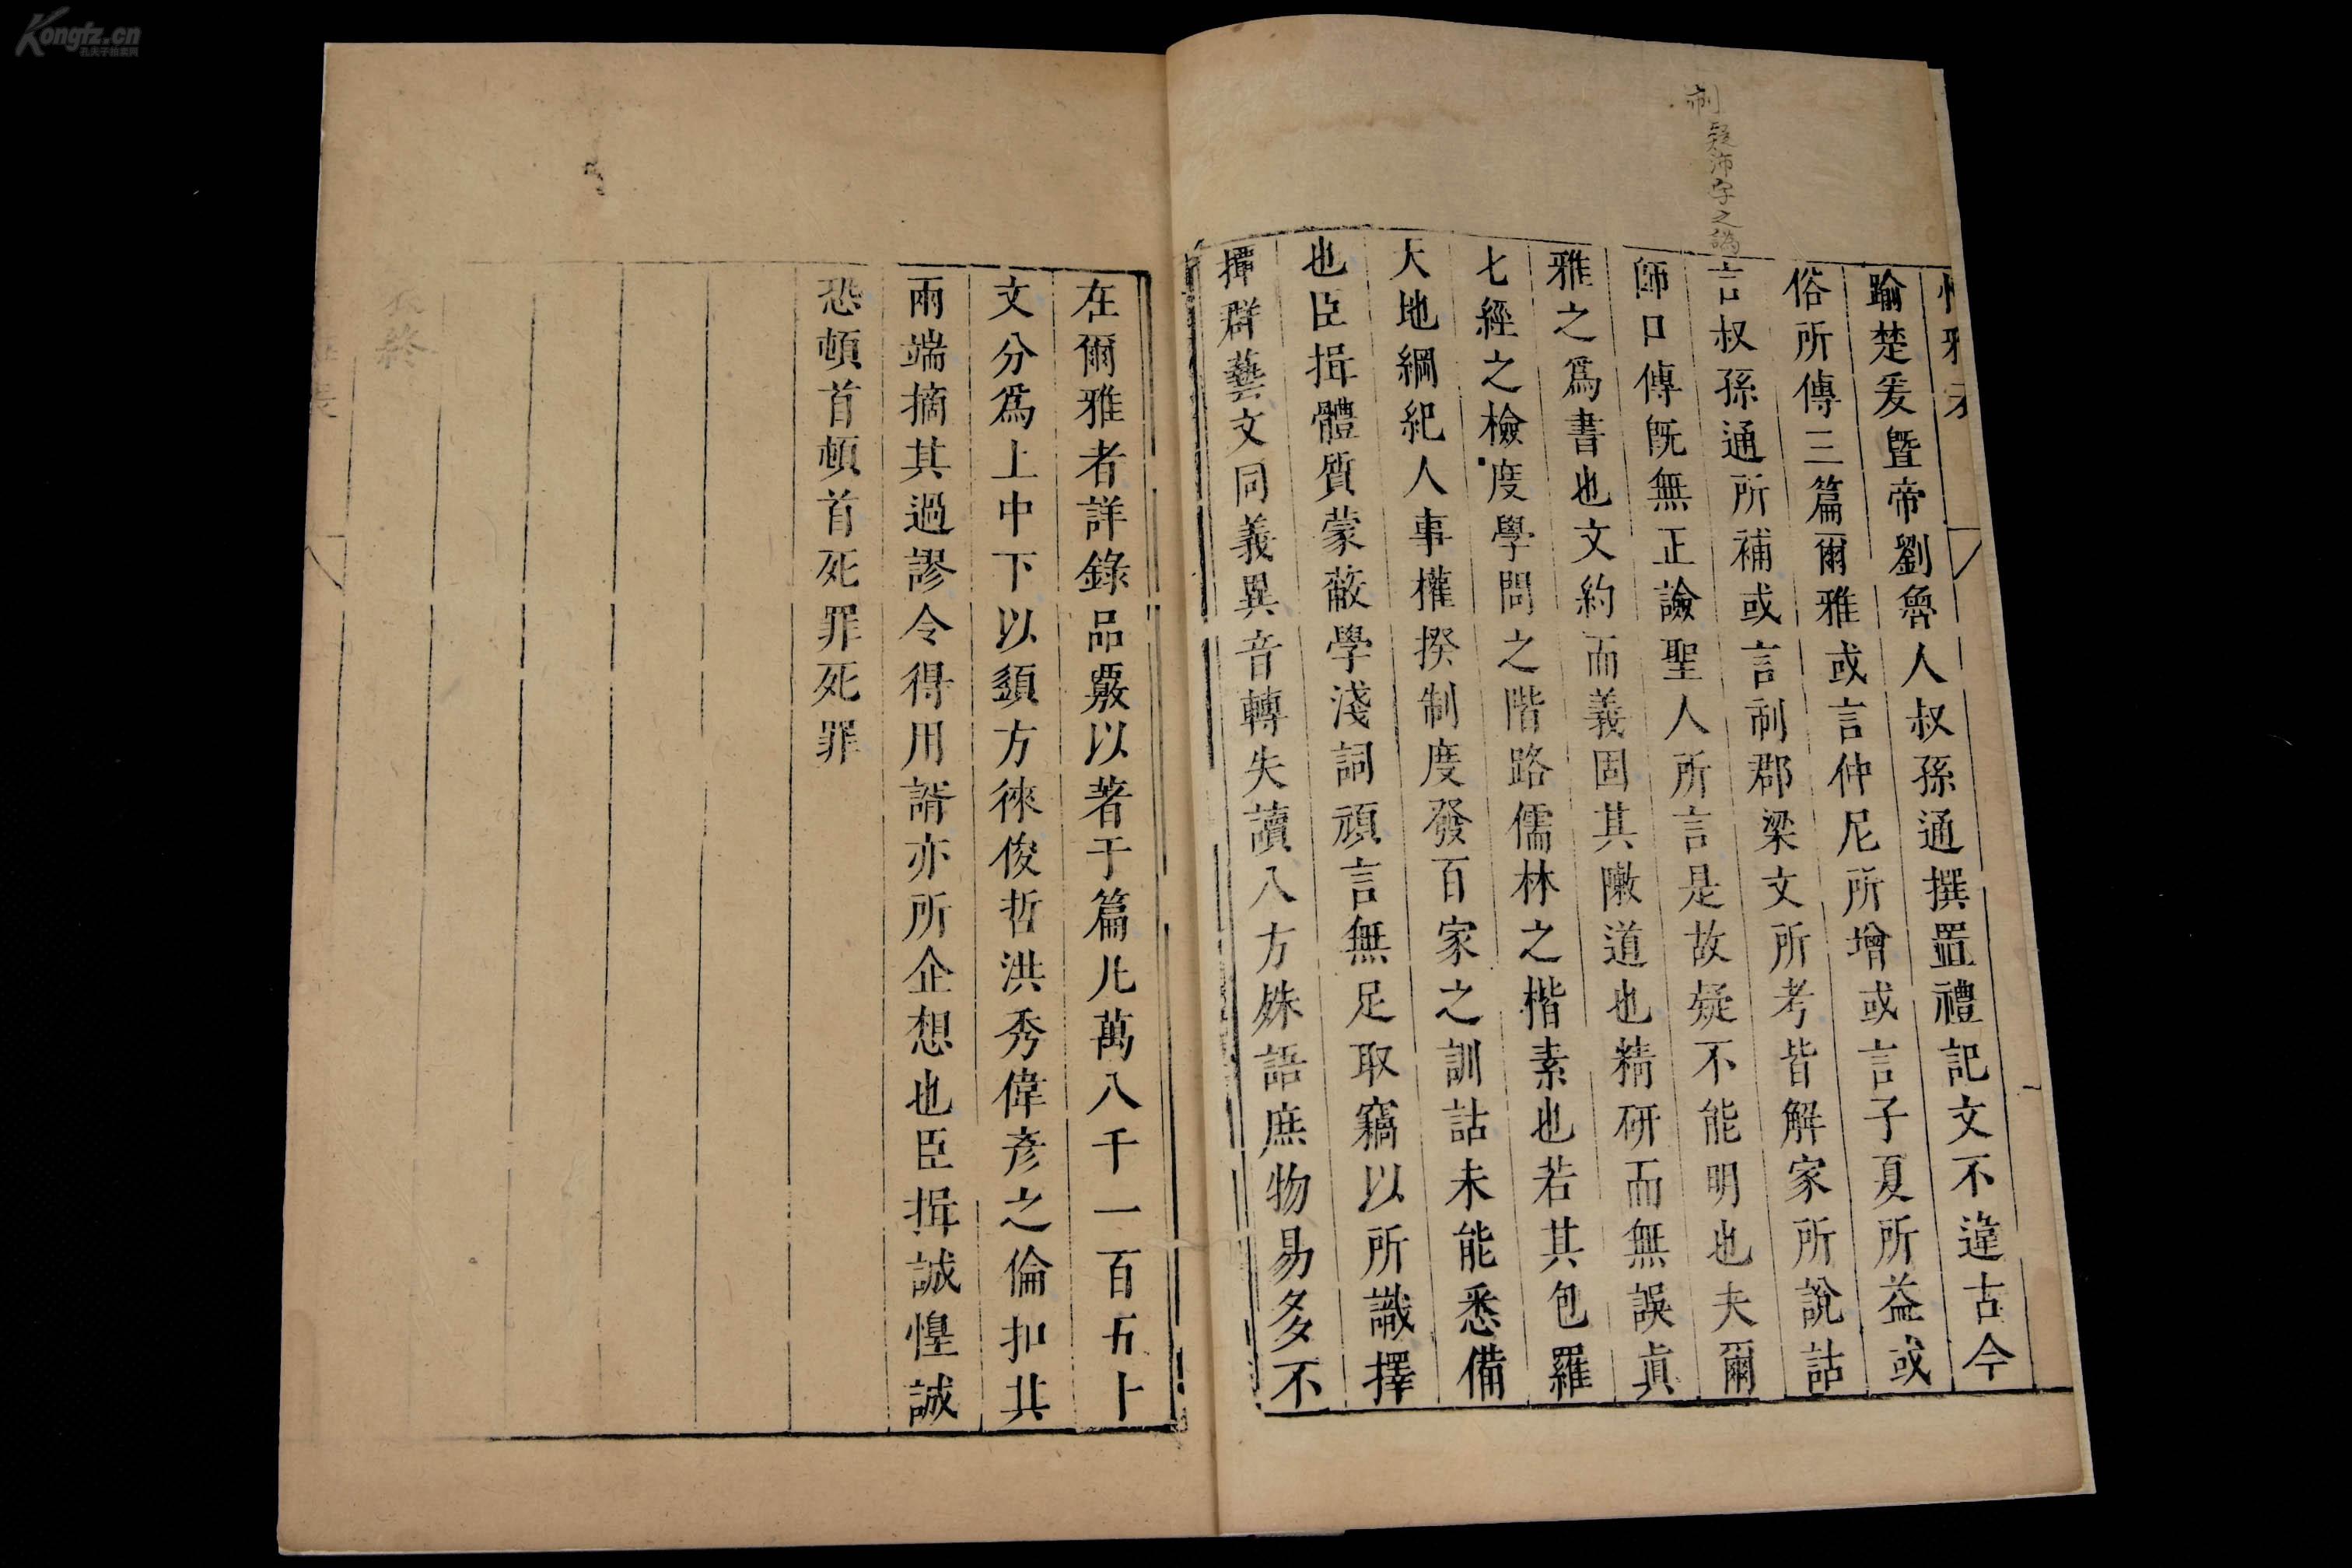 Kongfz.cn
孔夫子拍卖网
㓡疑沛字之譌
踰楚爰曁帝劉魯人叔孫通撰置禮記文不違古今
俗所傳三篇爾雅或言仲尼所增或言子夏所益或
言叔孫通所補或言㓡郡梁文所考皆解家所說詁
師口傳旣無正論聖人所言是故疑不能明也夫爾
雅之爲書也文約而義固其敶道也精研而無誤眞
七經之檢度學問之階路儒林之楷素也若其包羅
天地綱紀人事權揆制度發百家之訓詁未能悉備
也臣揖體質蒙蔽學淺詞頑言無足取竊以所識擇
撢群藝文同義異音轉失讀八方殊語庶物易名不
在爾雅者詳錄品覈以著于篇凡萬八千一百五十
文分爲上中下以須方徠俊哲洪秀偉彥之倫扣其
兩端摘其過謬令得用諝亦所企想也臣揖誠惶誠
恐頓首頓首死罪死罪